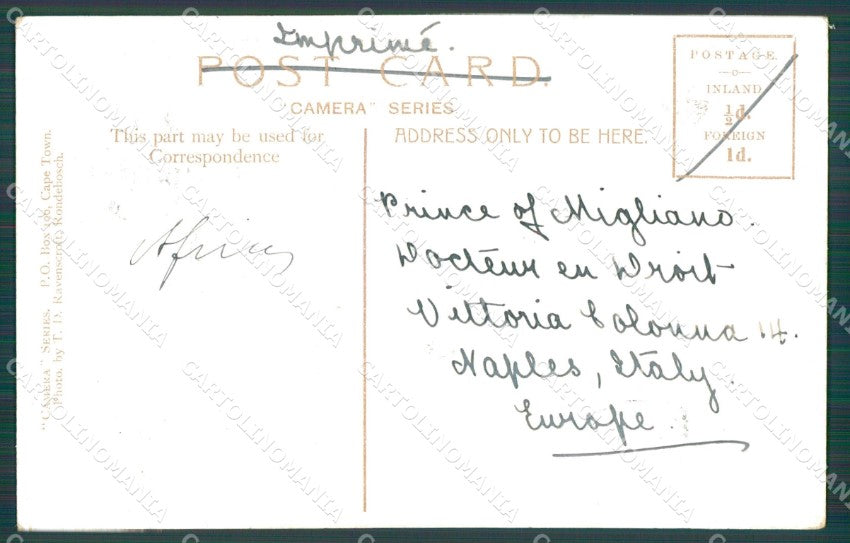 Imprimé.
POST CARD.
"CAMERA" SERIES
This part may be used for
Correspondence
ADDRESS ONLY TO BE HERE.
POSTAGE.
INLAND
½d.
FOREIGN
1d.
"CAMERA" SERIES. P.O. Box Cape Town.
Photo. by T. D. Ravenscroft, Rondebosch.
Prince of Migliano.
Docteur en Droit
Vittoria Colonna 14.
Naples, Italy.
Europe.
CARTOLINOMANIA